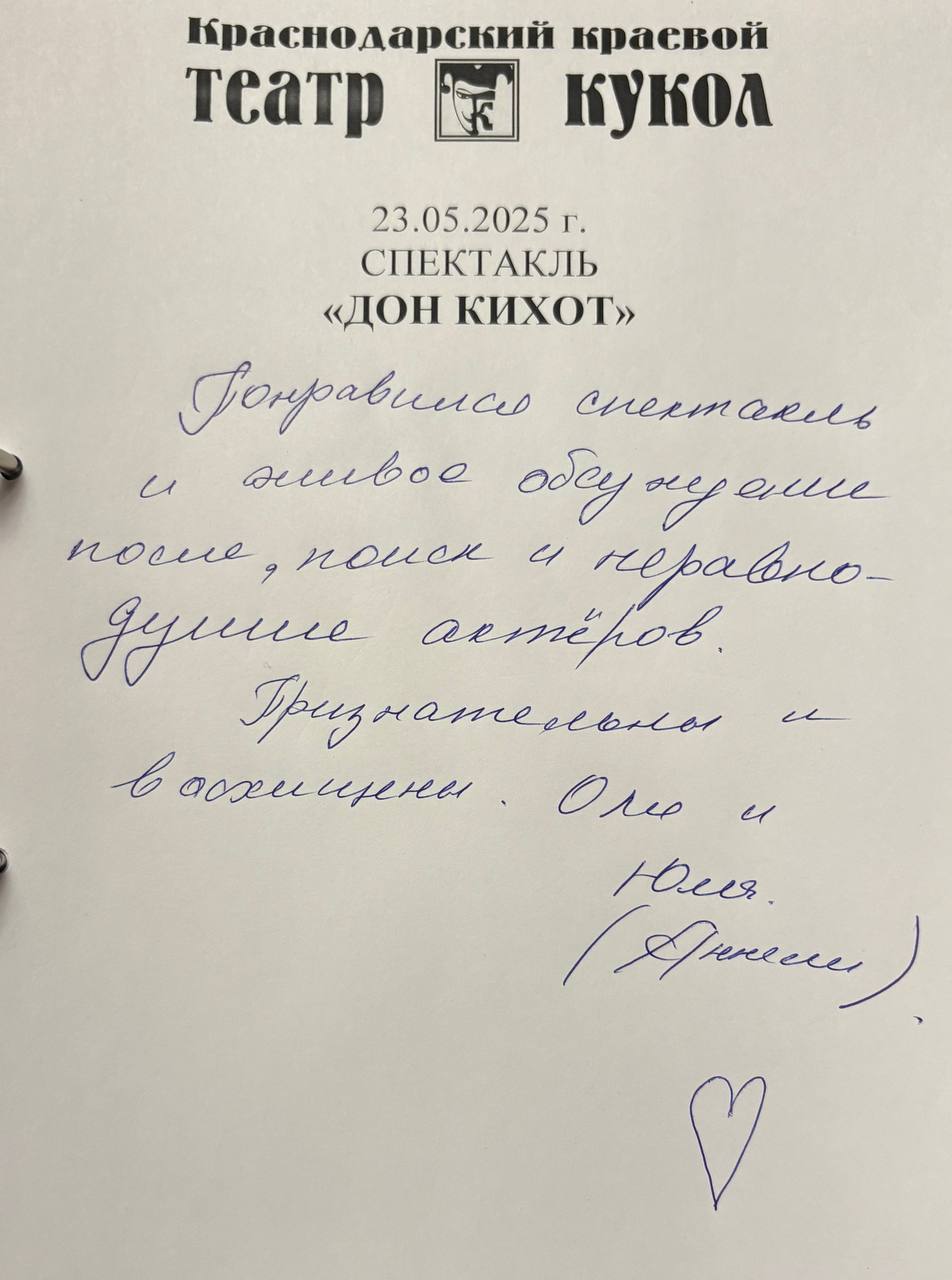 Краснодарский краевой
театр кукол
23.05.2025 г.
СПЕКТАКЛЬ
«ДОН КИХОТ»
Понравился спектакль
и живое обсуждение
после, поиск и неравно-
душие актёров.
Признательны и
восхищены. Оля и
Юля.